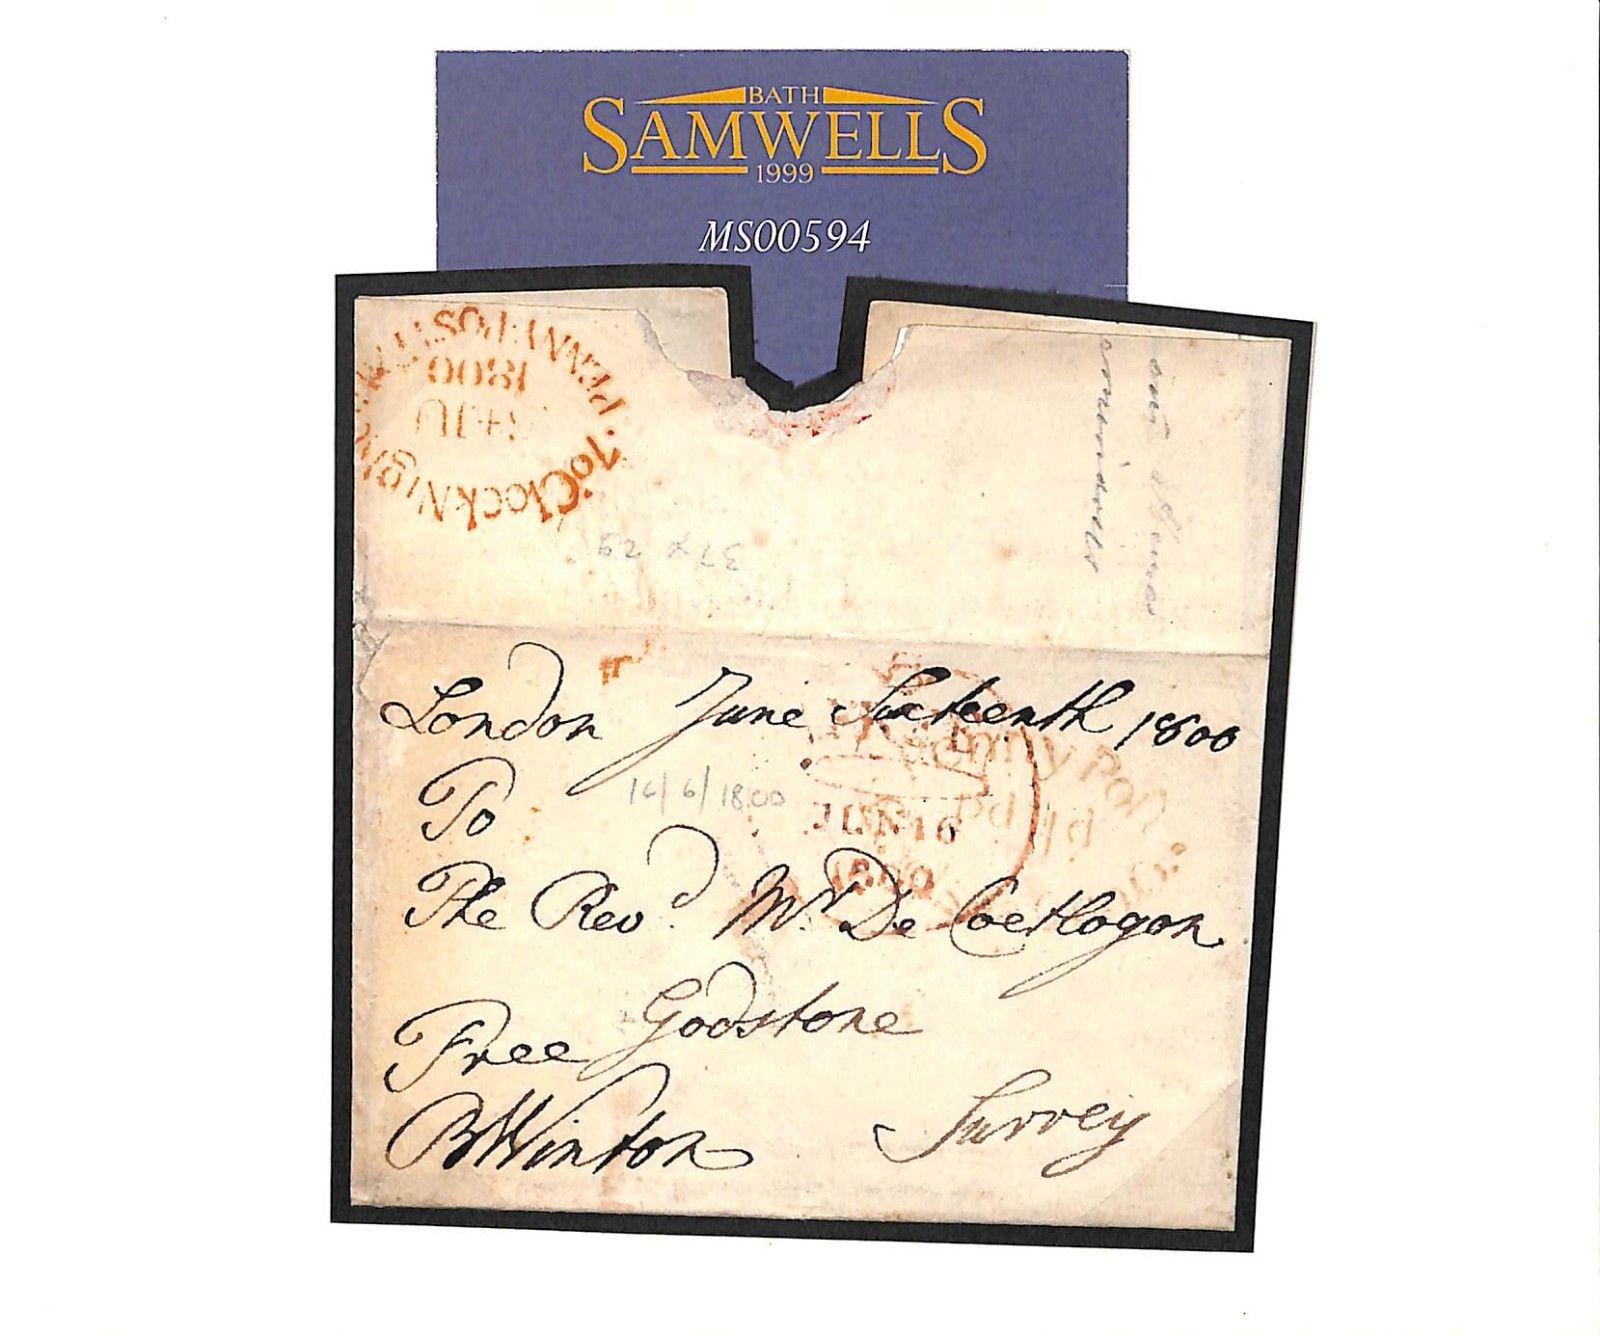 BATH
SAMWELLS
1999
MS00594
PENNY POST
1800
7o'Clock Night
London June Sixteenth 1800
16/6/1800
Penny Post
Pd 1d
JUN 16
1800
To
The Revd. Mr. De Coetlogon
Godstone
Free
BWinton
Surrey